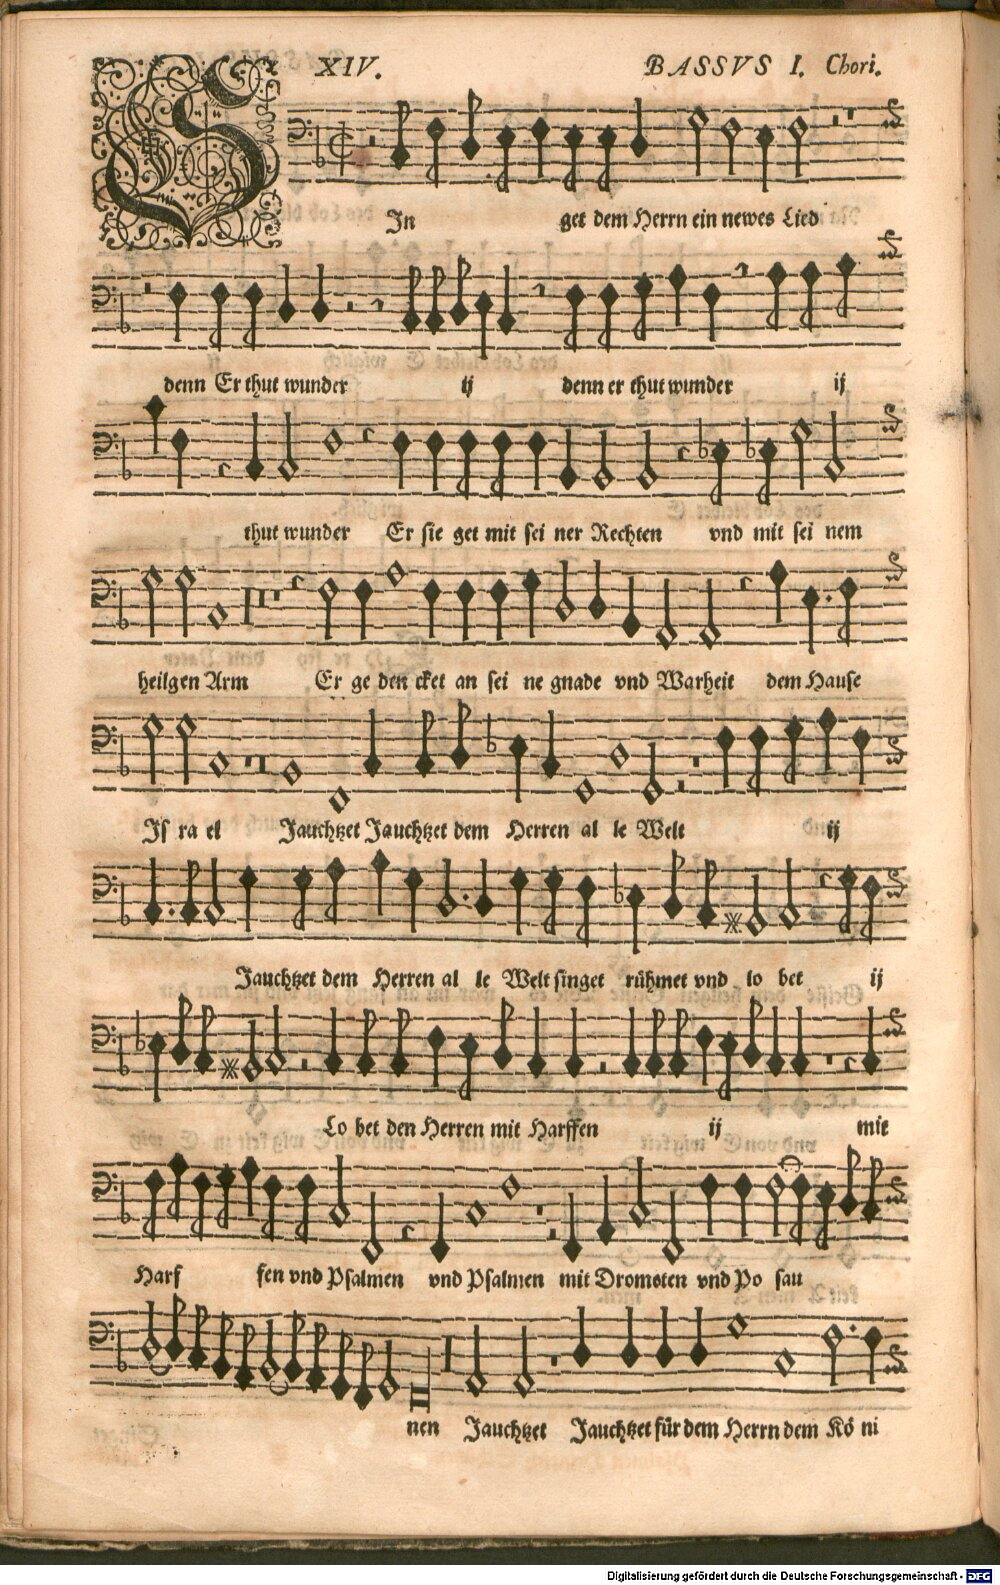 XIV. BASSVS I. Chori.
SIn get dem Herrn ein newes Lied
denn Er thut wunder ij denn er thut wunder ij
thut wunder Er sie get mit sei ner Rechten vnd mit sei nem
heilgen Arm Er ge den cket an sei ne gnade vnd Warheit dem Hause
Is ra el Jauchtzet Jauchtzet dem Herren al le Welt ij
Jauchtzet dem Herren al le Welt singet rühmet vnd lo bet ij
Lo bet den Herren mit Harffen ij mit
Harf fen vnd Psalmen vnd Psalmen mit Dromoten vnd Po sau
nen Jauchtzet Jauchtzet für dem Herrn dem Kö ni
Digitalisierung gefördert durch die Deutsche Forschungsgemeinschaft - DFG